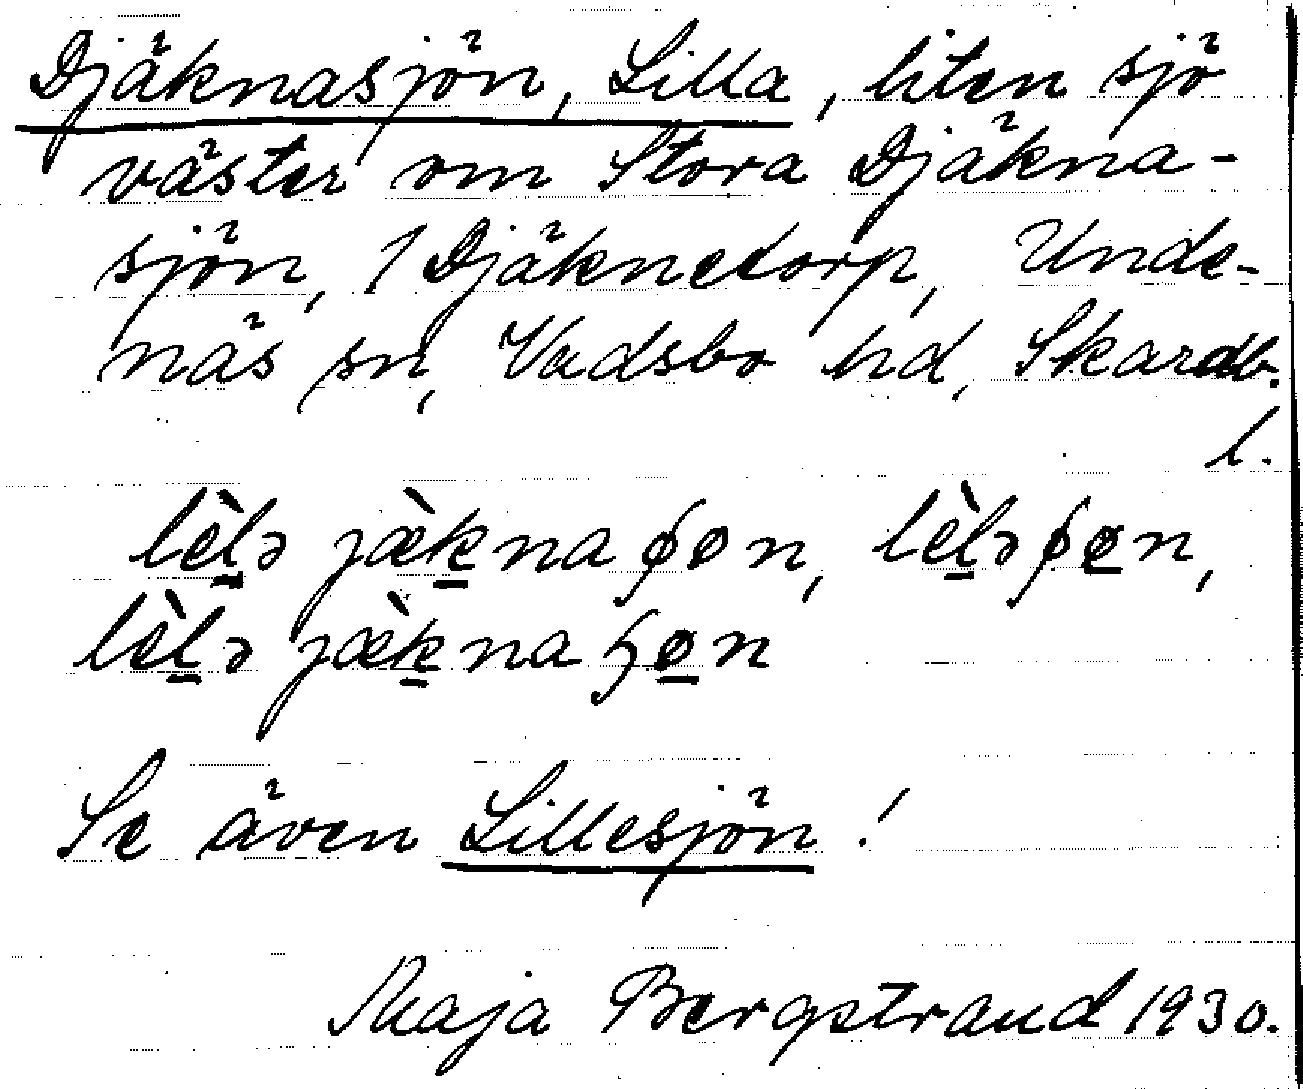 Djäknasjön, Lilla, liten sjö
väster om Stora Djäkna-
sjön, 1 Djäknetorp, Unde-
näs sn, Vadsbo hd, Skarab.
l.
lèlə jæ̀knaʃøn, lèləʃøn,
lèlə jæ̀knaɧøn
Se även Lillesjön!
Maja Bergstrand 1930.